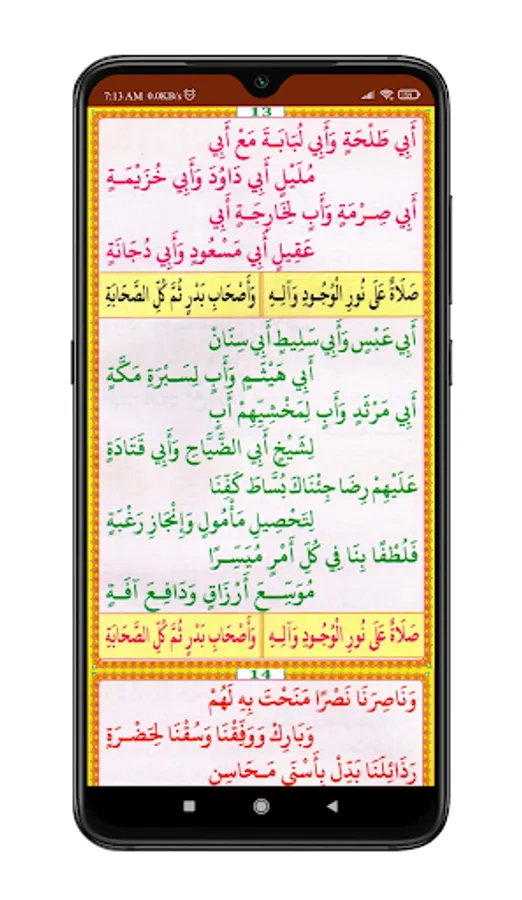 7:13 AM 0.0KB/s
13
أَبِي طَلْحَةٍ وَأَبِي لُبَابَـةَ مَعْ أَبِي
مُلَيْلٍ أَبِي دَاوُدَ وَأَبِي خُزَيْمَـةٍ
أَبِي صِـرْمَةٍ وَأَبٍ لِخَارِجَـةٍ أَبِي
عَقِيلٍ أَبِي مَسْعُودٍ وَأَبِي دُجَانَةٍ
صَلَاةٌ عَلَى نُورِ الْوُجُـودِ وَآلِـهِ وَأَصْحَابِ بَدْرٍ ثُمَّ كُلِّ الصَّحَابَةِ
أَبِي عَبْسٍ وَأَبِي سَلِيطٍ أَبِي سِنَانْ
أَبِي هَيْثَـمٍ وَأَبٍ لِسَـبْرَةِ مَكَّةٍ
أَبِي مَرْثَدٍ وَأَبٍ لِمَخْشِيِّهِمْ أَبٍ
لِشَيْخٍ أَبِي الضَّيَّاحِ وَأَبِي قَتَادَةٍ
عَلَيْهِمْ رِضَا جِئْنَاكَ بُسَّاطَ كَفِّنَا
لِتَحْصِيلِ مَأْمُولٍ وَإِنْجَازِ رَغْبَةٍ
فَلُطْفًا بِنَا فِي كُلِّ أَمْرٍ مُيَسِّـرًا
مُوَسِّـعَ أَرْزَاقٍ وَدَافِـعَ آفَـةٍ
صَلَاةٌ عَلَى نُورِ الْوُجُـودِ وَآلِـهِ وَأَصْحَابِ بَدْرٍ ثُمَّ كُلِّ الصَّحَابَةِ
14
وَنَاصِرَنَا نَصْرًا مَنَحْتَ بِهِ لَهُمْ
وَبَارِكْ وَوَفِّقْنَا وَسُقْنَا لِحَضْـرَةٍ
رَذَائِلَنَا بَدِّلْ بِأَسْنَى مَـحَاسِنٍ